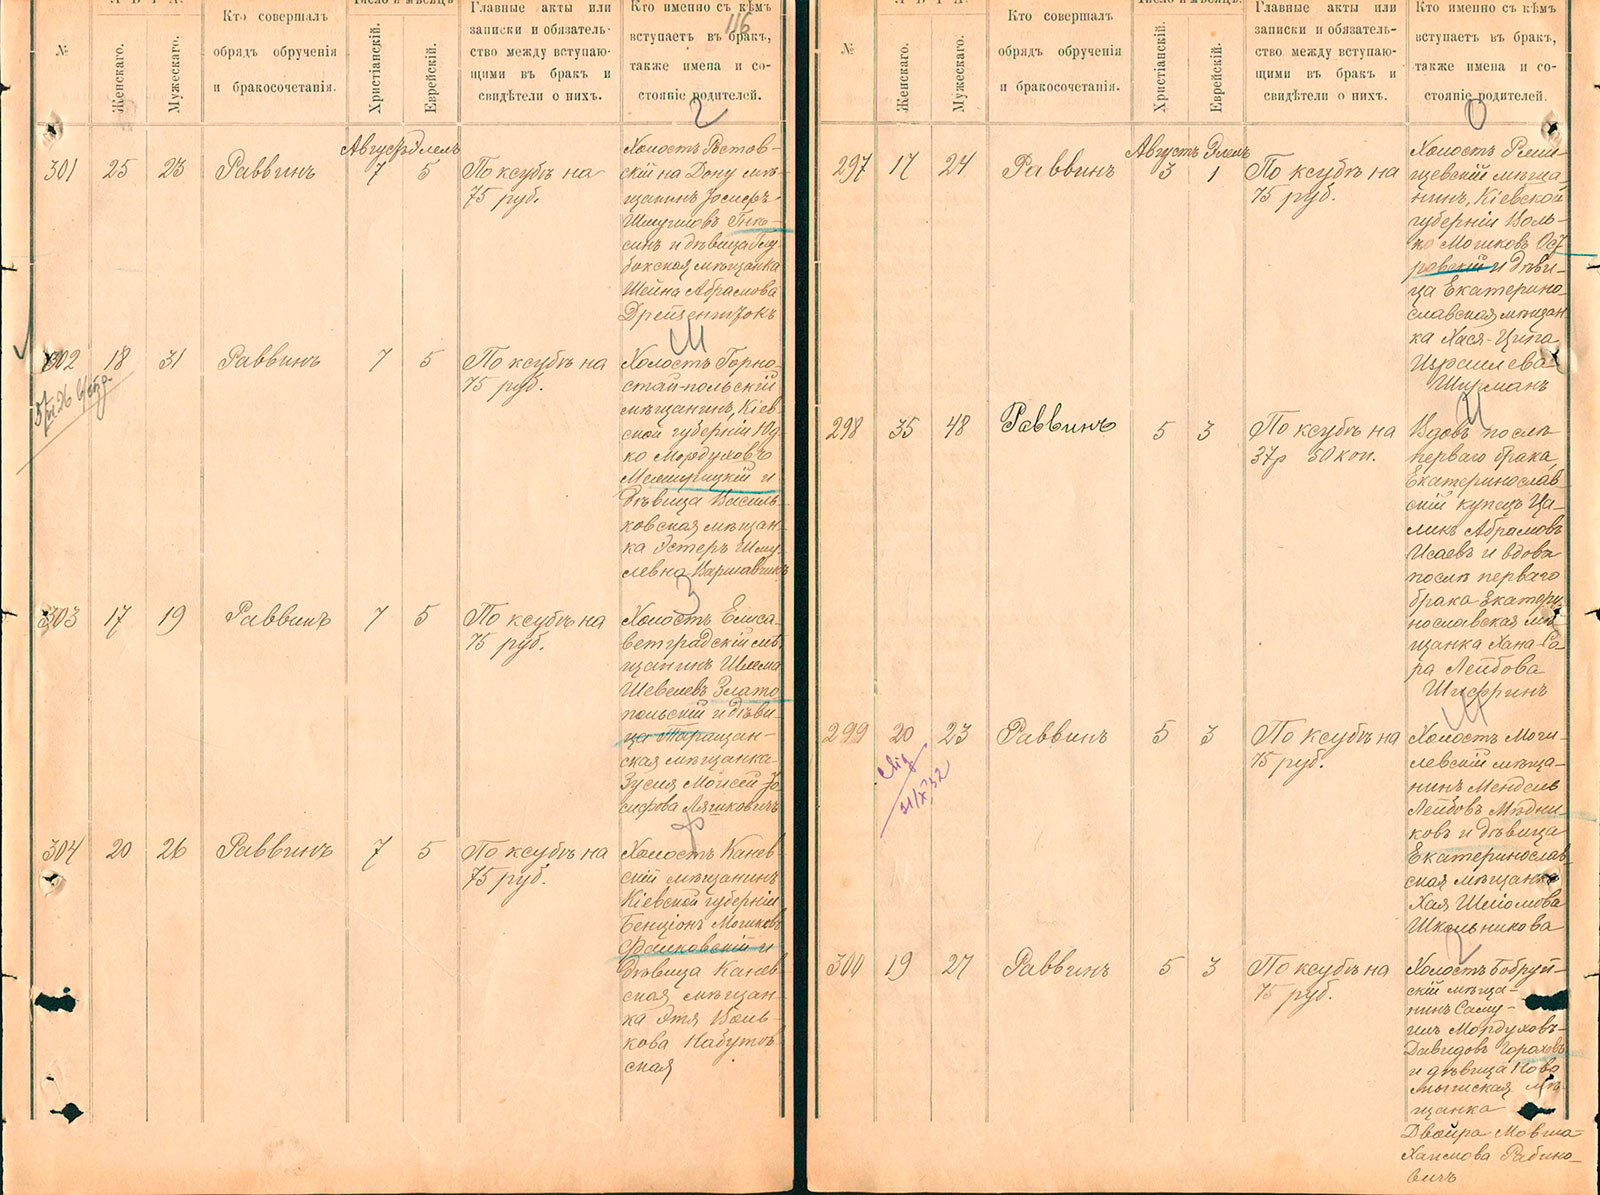 116
№
Женскаго.
Мужескаго.
Кто совершалъ
обрядъ обрученія
и бракосочетанія.
Число и мѣсяцъ.
Христіанскій.
Еврейскій.
Главные акты или
записки и обязатель-
ство между вступаю-
щими въ бракъ и
свидѣтели о нихъ.
Кто именно съ кѣмъ
вступаетъ въ бракъ,
также имена и со-
стояніе родителей.
301 25 23 Раввинъ
Августъ Элелъ
7 5
По ксубѣ на
75 руб.
Холостъ Ростов-
скій на Дону мѣ-
щанинъ Іосифъ
Шмуиловъ
и дѣвица
мѣщанка
Шейна Абрамова
302 18 31 Раввинъ 7 5
По ксубѣ на
75 руб.
Холостъ Горно-
стай-польскій
мѣщанинъ, Кіев-
ской губерніи Юд-
ко Мордуховъ
Межирицкій и
дѣвица Василь-
ковская мѣщан-
ка Эстеръ Шму-
левна Варшавчикъ
303 17 19 Раввинъ 7 5
По ксубѣ на
75 руб.
Холостъ Елиса-
ветградскій мѣ-
щанинъ Шлема
Шевелевъ Злато-
польскій и дѣви-
ца Таращан-
ская мѣщанка
Зусия Моисей-Іо-
сифова Ляшковичъ
304 20 26 Раввинъ 7 5
По ксубѣ на
75 руб.
Холостъ Канев-
скій мѣщанинъ
Кіевской губерніи
Бенціонъ Мошковъ
Файковскій и
дѣвица Канев-
ская мѣщан-
ка Этя Воль-
кова Набутов-
ская
№
Женскаго.
Мужескаго.
Кто совершалъ
обрядъ обрученія
и бракосочетанія.
Число и мѣсяцъ.
Христіанскій.
Еврейскій.
Главные акты или
записки и обязатель-
ство между вступаю-
щими въ бракъ и
свидѣтели о нихъ.
Кто именно съ кѣмъ
вступаетъ въ бракъ,
также имена и со-
стояніе родителей.
297 17 24 Раввинъ
Августъ Элелъ
3 1
По ксубѣ на
75 руб.
Холостъ
мѣща-
нинъ, Кіевской
губерніи Воль-
ко Мошковъ Ост-
ровскій и дѣви-
ца Екатерино-
славская мѣщан-
ка Хася-Ципа
Израилева
Шурманъ
298 35 48 Раввинъ 5 3
По ксубѣ на
37р 50 коп.
Вдовъ послѣ
перваго брака,
Екатеринослав-
скій купецъ Ца-
ликъ Абрамовъ
Исаевъ и вдова
послѣ перваго
брака Екатери-
нославская мѣ-
щанка Хана-Са-
ра Лейбова
Шифринъ
299 20 23 Раввинъ 5 3
31/X 32
По ксубѣ на
75 руб.
Холостъ Моги-
левскій мѣща-
нинъ Мендель
Лейбовъ Мѣдни-
ковъ и дѣвица
Екатеринослав-
ская мѣщанка
Хая Шліомова
Школьникова
300 19 27 Раввинъ 5 3
По ксубѣ на
75 руб.
Холостъ Бобруй-
скій мѣща-
нинъ Саму-
илъ Мордуховъ-
Давидовъ Гороховъ
и дѣвица Ново
мѣ-
щанка
Двойра Мовша-
Хаимова Рабино-
вичъ